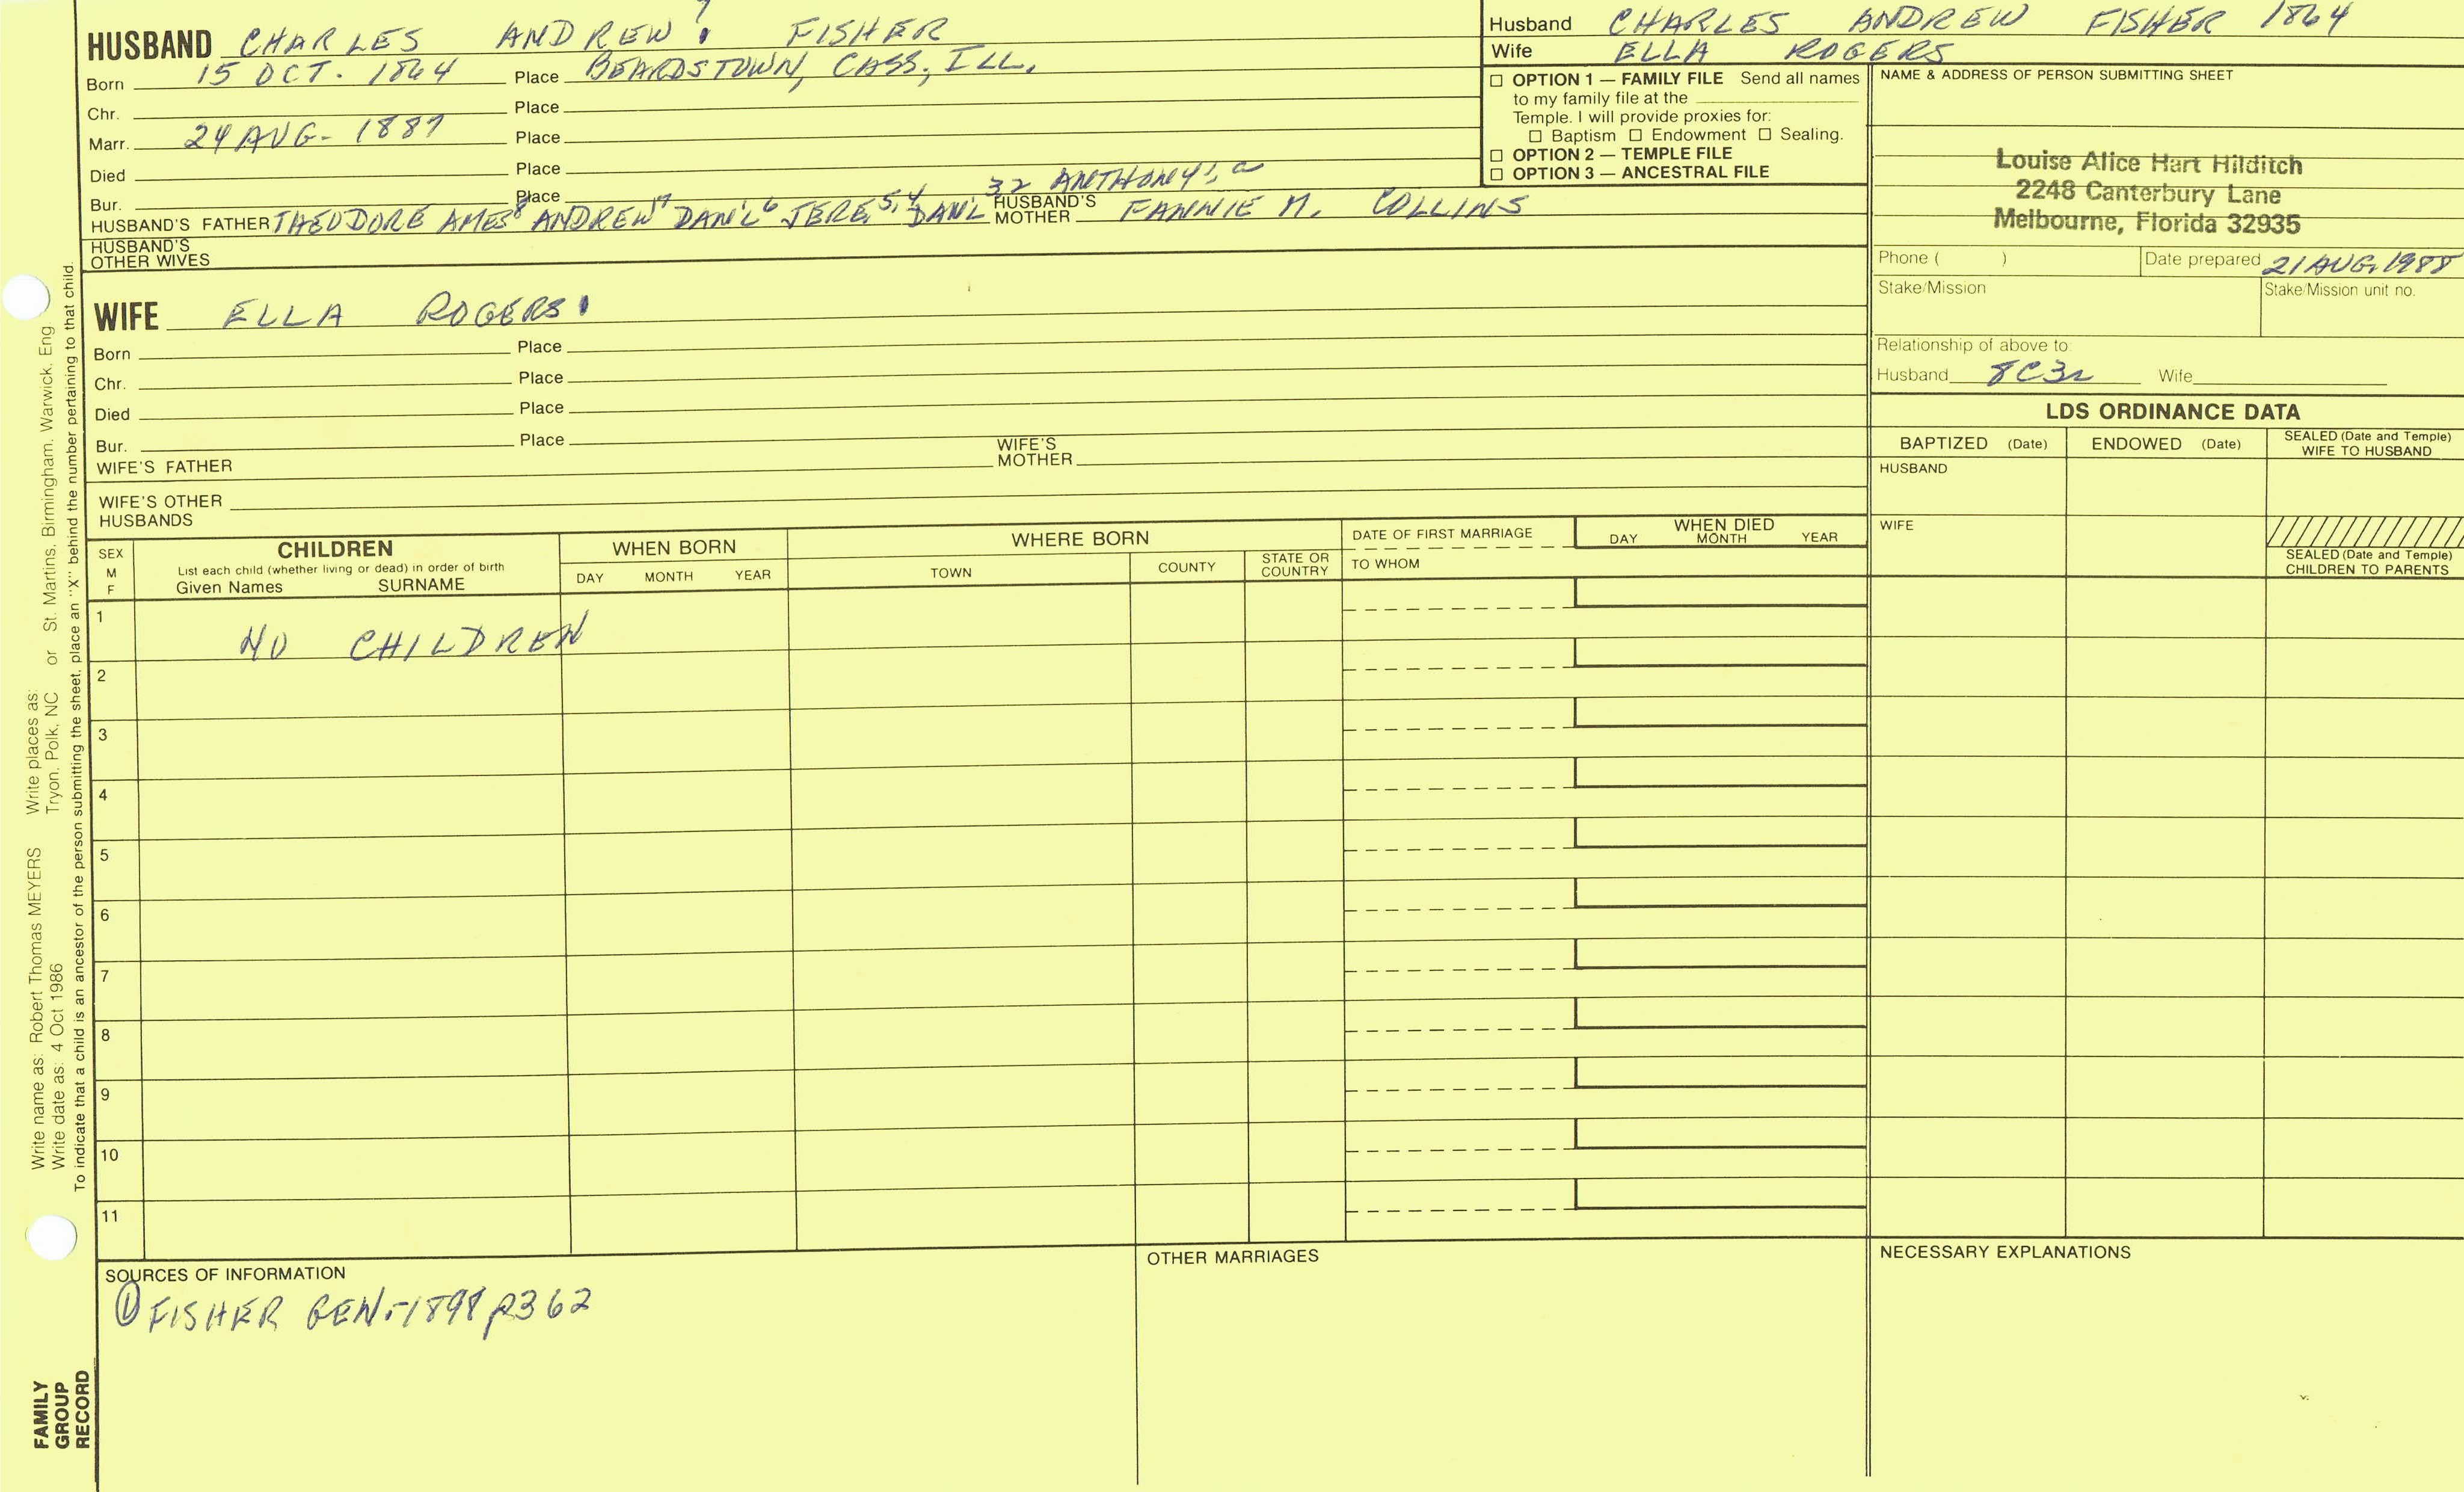 HUSBAND CHARLES ANDREW FISHER
Born 15 OCT. 1864 Place BEARDSTOWN, CASS, ILL.
Chr. Place
Marr. 24 AUG- 1887 Place
Died Place
Bur. Place 32 ANTHONY
HUSBAND'S FATHER THEODORE AMES8 ANDREW7 DAN'L6 JERE5,4 DANL HUSBAND'S MOTHER FANNIE M. COLLINS
HUSBAND'S OTHER WIVES
Husband CHARLES ANDREW FISHER 1864
Wife ELLA ROGERS
☐ OPTION 1 — FAMILY FILE Send all names
to my family file at the
Temple. I will provide proxies for:
☐ Baptism ☐ Endowment ☐ Sealing.
☐ OPTION 2 — TEMPLE FILE
☐ OPTION 3 — ANCESTRAL FILE
NAME & ADDRESS OF PERSON SUBMITTING SHEET
Louise Alice Hart Hilditch
2248 Canterbury Lane
Melbourne, Florida 32935
Phone ( ) Date prepared 21 AUG, 1988
Stake/Mission Stake/Mission unit no.
Relationship of above to:
Husband 8C3R Wife
WIFE ELLA ROGERS
Born Place
Chr. Place
Died Place
Bur. Place
WIFE'S FATHER WIFE'S MOTHER
WIFE'S OTHER HUSBANDS
LDS ORDINANCE DATA
BAPTIZED (Date) ENDOWED (Date) SEALED (Date and Temple) WIFE TO HUSBAND
HUSBAND
WIFE
SEALED (Date and Temple) CHILDREN TO PARENTS
SEX M F
CHILDREN
List each child (whether living or dead) in order of birth
Given Names SURNAME
WHEN BORN
DAY MONTH YEAR
WHERE BORN
TOWN COUNTY STATE OR COUNTRY
DATE OF FIRST MARRIAGE
TO WHOM
WHEN DIED
DAY MONTH YEAR
1 NO CHILDREN
2
3
4
5
6
7
8
9
10
11
SOURCES OF INFORMATION
① FISHER GEN.-1898 p362
OTHER MARRIAGES
NECESSARY EXPLANATIONS
Write name as: Robert Thomas MEYERS Write places as:
Write date as: 4 Oct 1986 Tryon, Polk, NC or St. Martins, Birmingham, Warwick, Eng
To indicate that a child is an ancestor of the person submitting the sheet, place an "X" behind the number pertaining to that child.
FAMILY
GROUP
RECORD